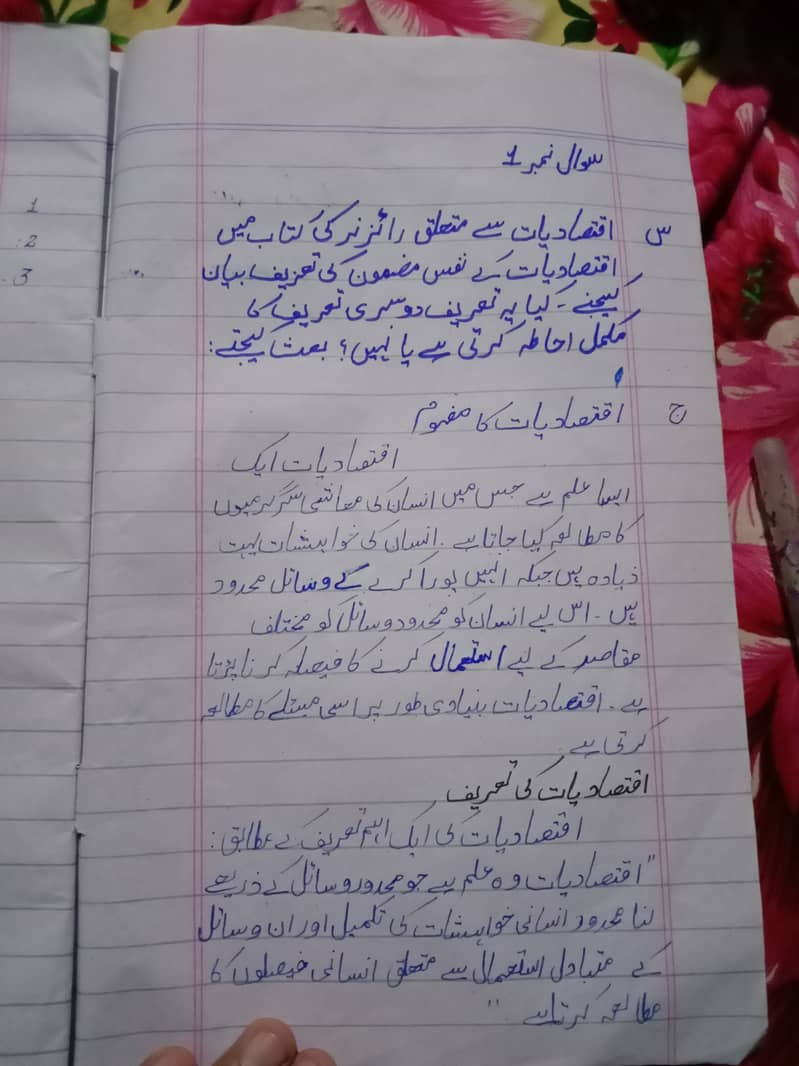 سوال نمبر 1
س اقتصادیات سے متعلق رائزنر کی کتاب میں
اقتصادیات کے نفس مضمون کی تعریف بیان
کیجئے۔ کیا یہ تعریف دوسری تعریف کا
مکمل احاطہ کرتی ہے یا نہیں؟ بحث کیجئے:
ج اقتصادیات کا مفہوم
اقتصادیات ایک
ایسا علم ہے جس میں انسان کی معاشی سرگرمیوں
کا مطالعہ کیا جاتا ہے۔ انسان کی خواہشات بہت
زیادہ ہیں جبکہ انہیں پورا کرنے کے وسائل محدود
ہیں۔ اس لیے انسان کو محدود وسائل کو مختلف
مقاصد کے لیے استعمال کرنے کا فیصلہ کرنا پڑتا
ہے۔ اقتصادیات بنیادی طور پر اسی مسئلے کا مطالعہ
کرتی ہے۔
اقتصادیات کی تعریف
اقتصادیات کی ایک اہم تعریف کے مطابق:
"اقتصادیات وہ علم ہے جو محدود وسائل کے ذریعے
لا محدود انسانی خواہشات کی تکمیل اور ان وسائل
کے متبادل استعمال سے متعلق انسانی فیصلوں کا
مطالعہ کرتا ہے"
1
2:
3.